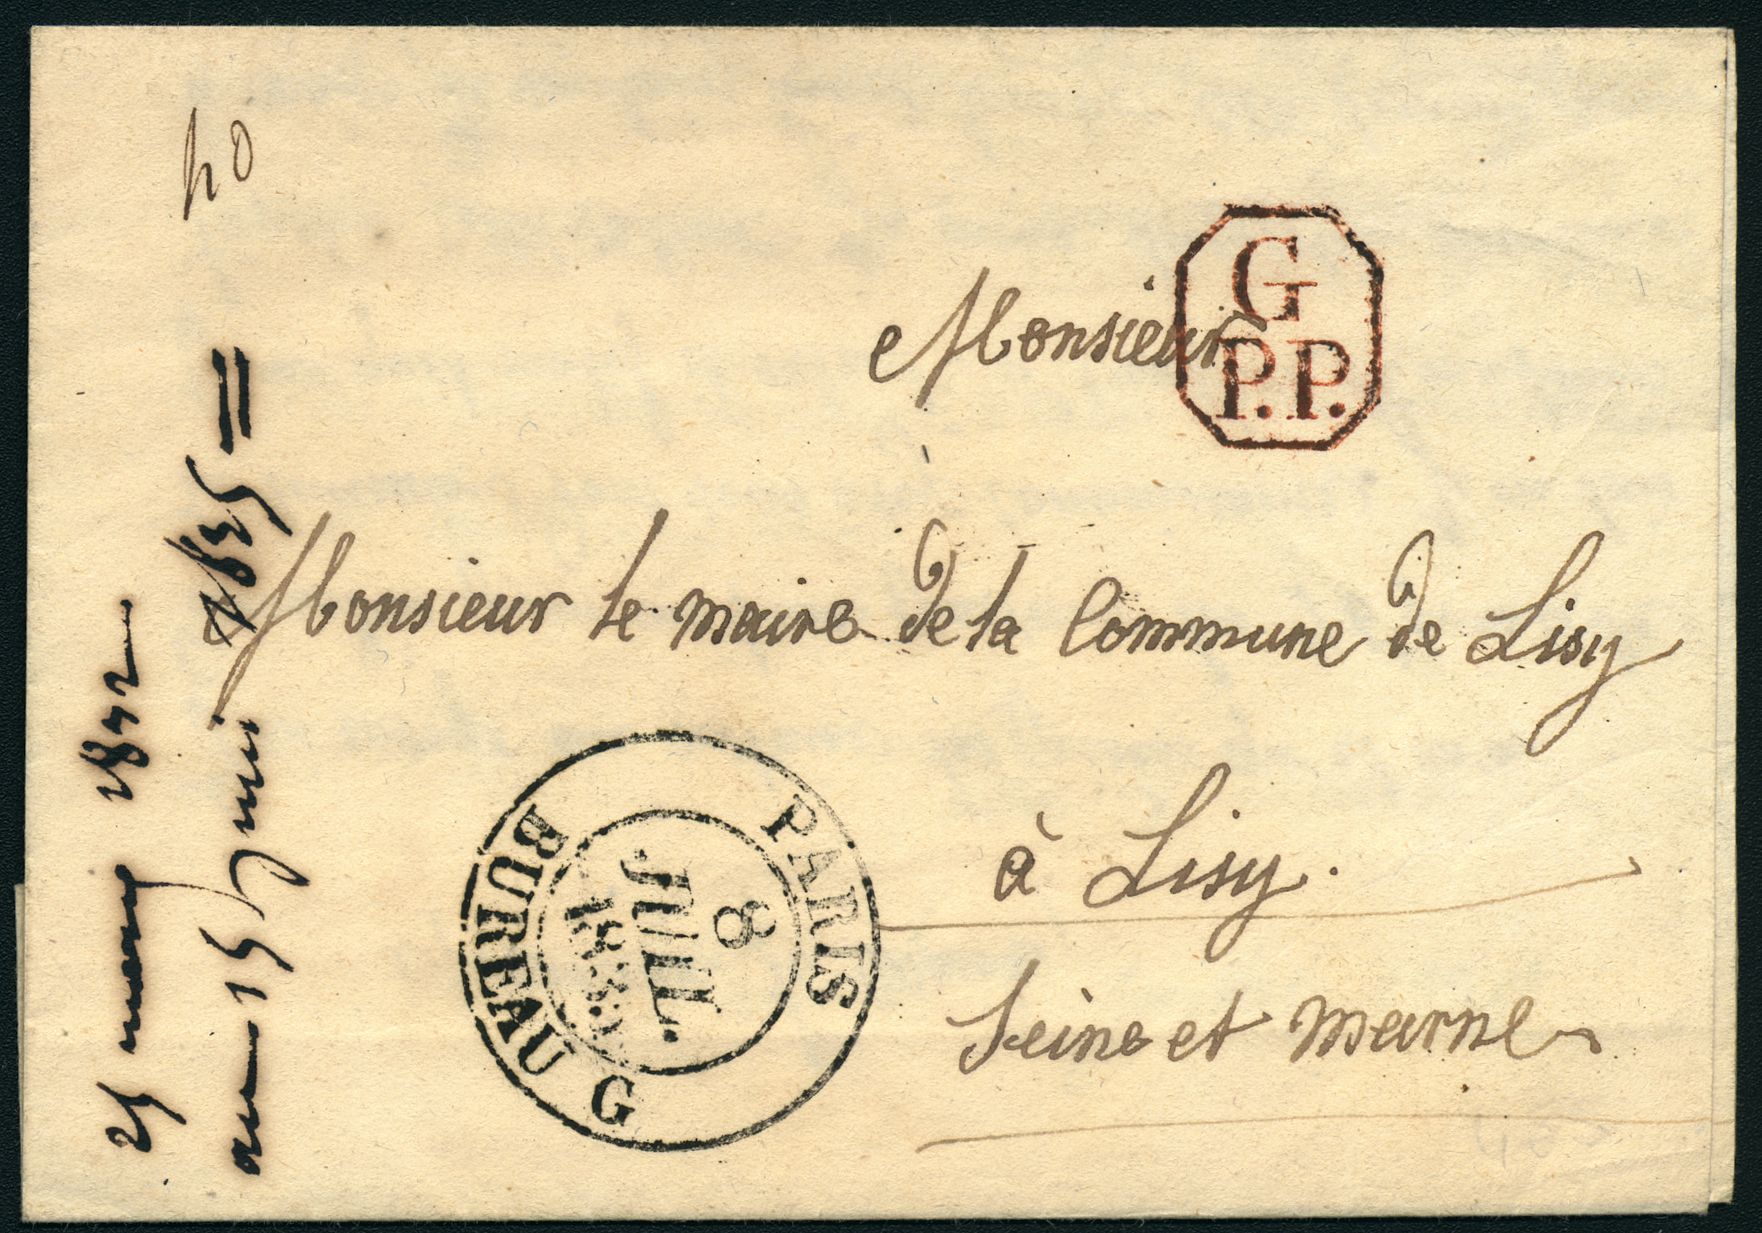 40
G
P.P.
Monsieur
Monsieur le maire de la Commune de Lisy
à Lisy.
Seine et marne
PARIS
8
JUIL.
BUREAU G
25 mars
au 15 juin 1835